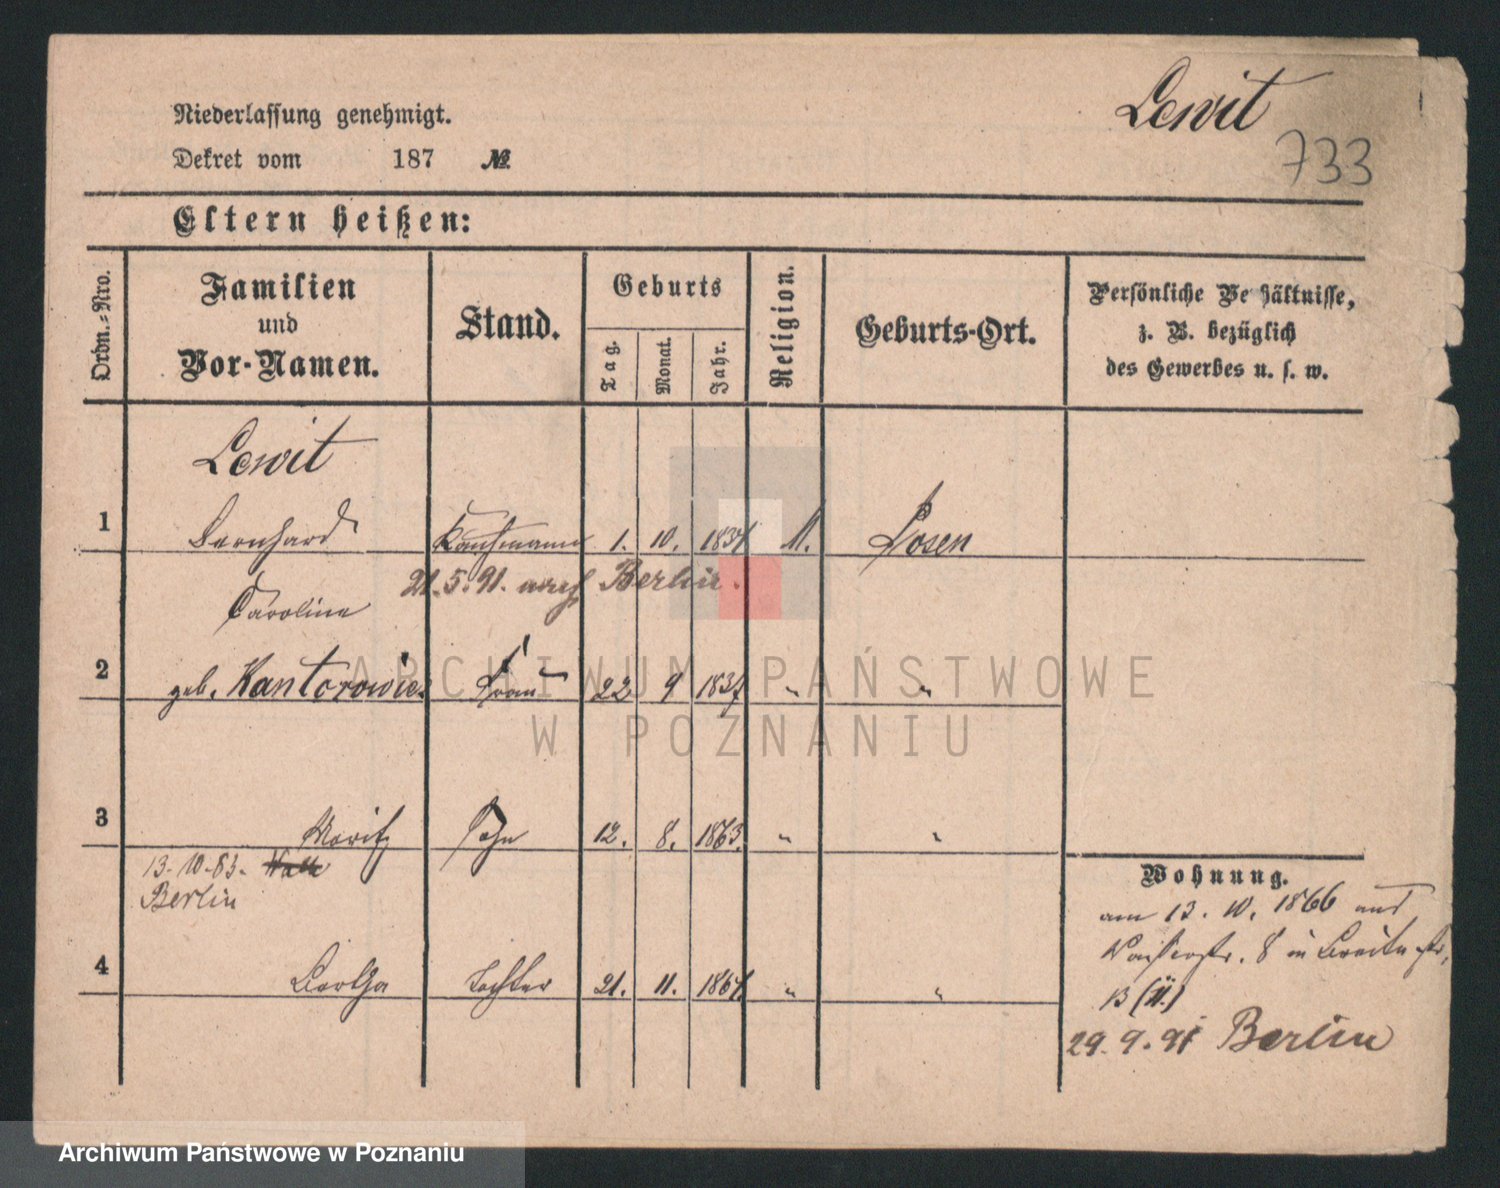 Lewit
733
Niederlassung genehmigt.
Dekret vom 187 №
Eltern heißen:
Ordn.-Nro.
Familien
und
Vor-Namen.
Stand.
Geburts
Tag.
Monat.
Jahr.
Religion.
Geburts-Ort.
Persönliche Verhältnisse,
z. B. bezüglich
des Gewerbes u. s. w.
Lewit
1 Bernhard Kaufmann 1. 10. M. Posen
21. 5. 91. nach Berlin.
Caroline
2 geb. Kantorowicz Frau 22 9 1837 " "
3 Moritz Sohn 12. 8. 1863. " "
13. 10. 83.
Berlin
4 Bertha Tochter 21. 11. " "
Wohnung.
am 13. 10. 1866 aus
8 in Breitestr.
13
29. 9. 91 Berlin
ARCHIWUM PAŃSTWOWE
W POZNANIU
Archiwum Państwowe w Poznaniu